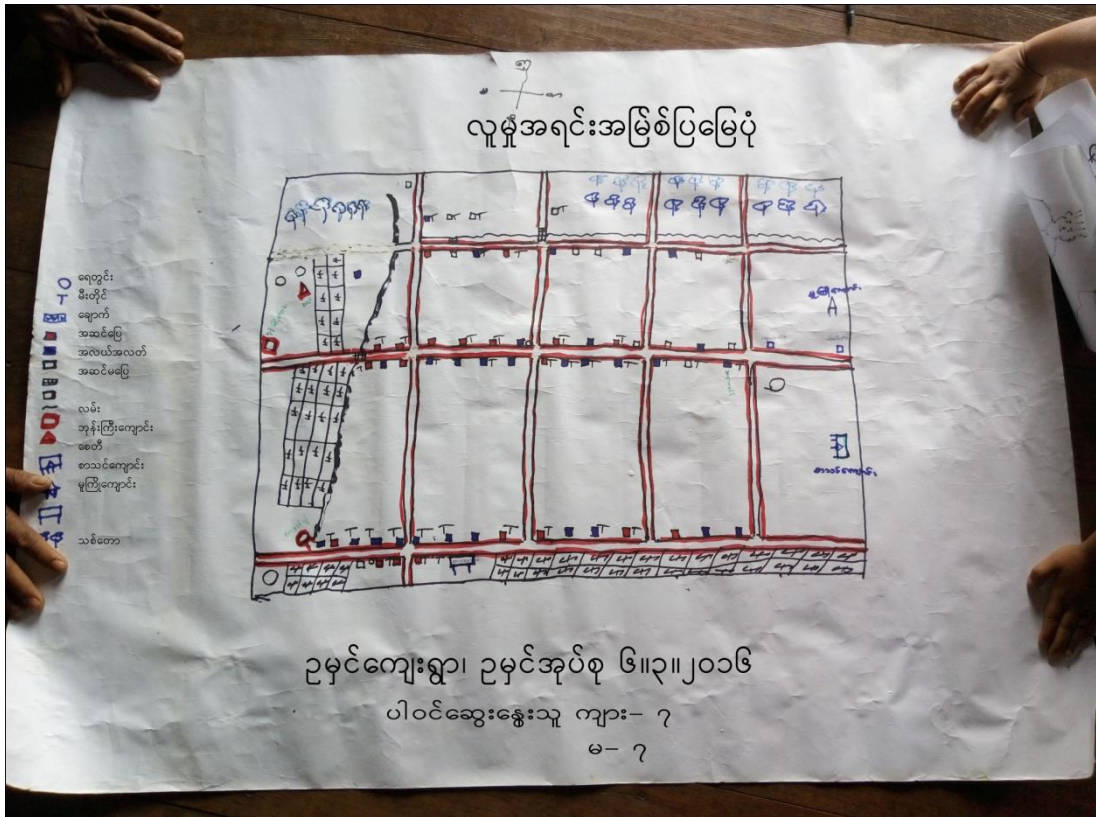 လူမှုအရင်းအမြစ်ပြမြေပုံ
ရေတွင်း
မီးတိုင်
ချောက်
အဆင်ပြေ
အလယ်အလတ်
အဆင်မပြေ
လမ်း
ဘုန်းကြီးကျောင်း
စေတီ
စာသင်ကျောင်း
မူကြိုကျောင်း
သစ်တော
ဥမှင်ကျေးရွာ၊ ဥမှင်အုပ်စု ၆။၃။၂၀၁၆
ပါဝင်ဆွေးနွေးသူ ကျား- ၇
မ- ၇